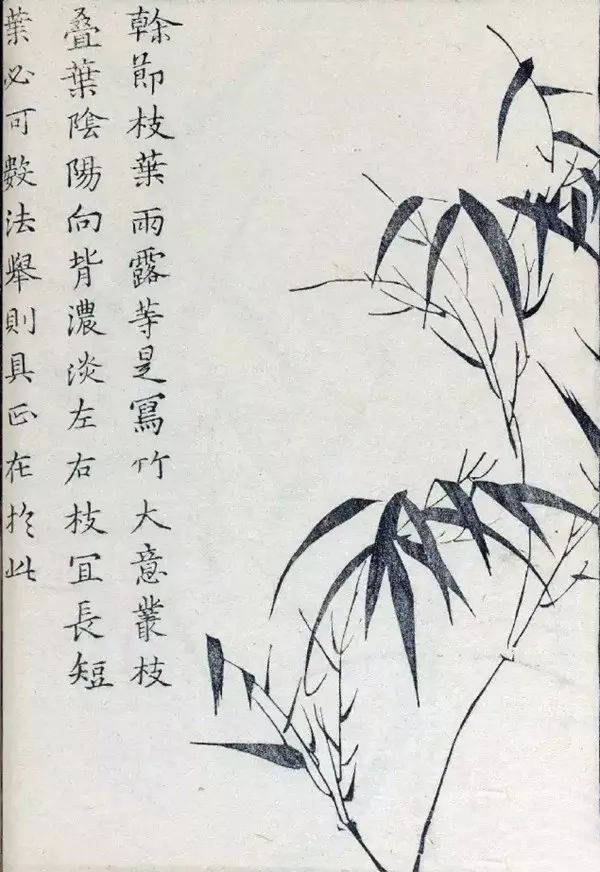 榦節枝葉雨露等是寫竹大意叢枝
叠葉陰陽向背濃淡左右枝冝長短
葉必可數法舉則具正在於此